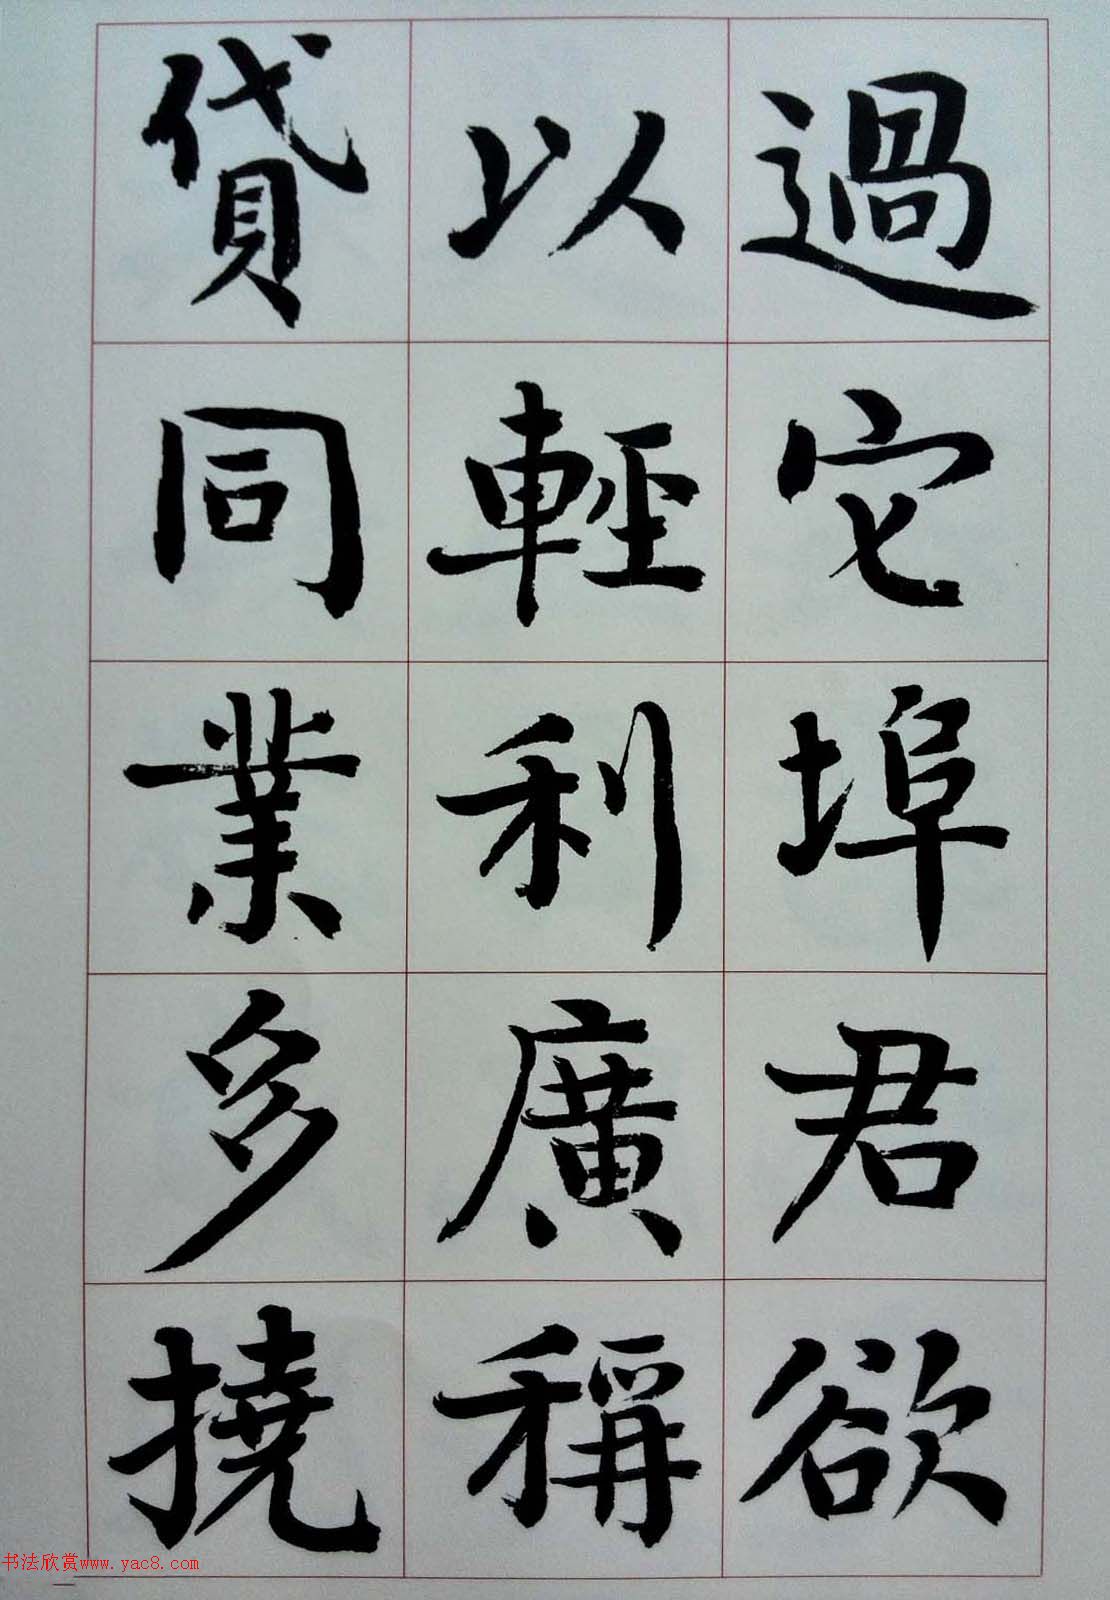 過它埠君欲
以輕利廣稱
貸同業多撓
书法欣赏www.yac8.com